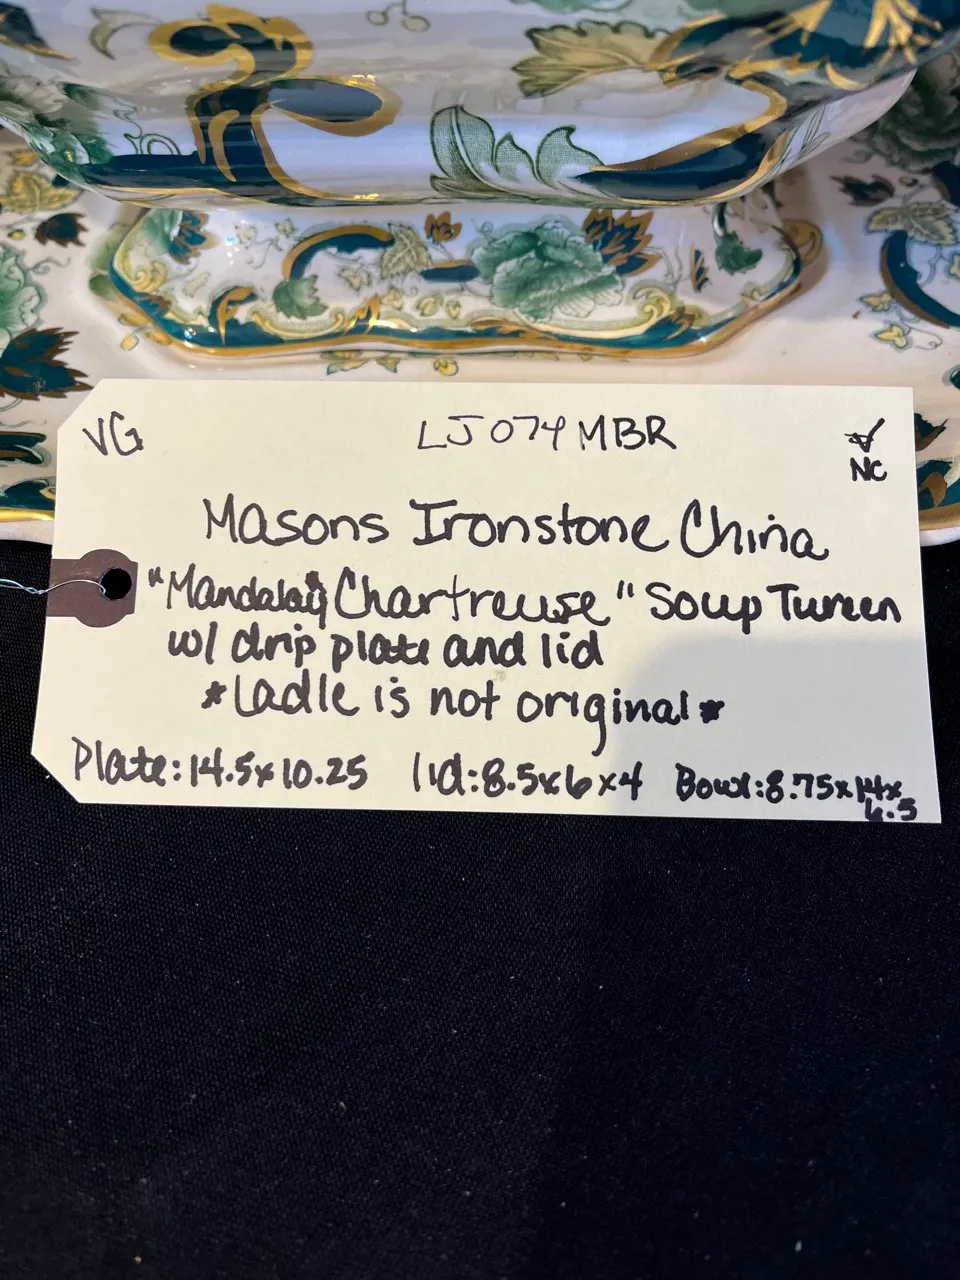 VG LJ074MBR
NC
Masons Ironstone China
"Mandalay Chartreuse" Soup Tureen
w/ drip plate and lid
*Ladle is not original*
Plate: 14.5x10.25 lid: 8.5x6x4 Bowl: 8.75x14x
6.5